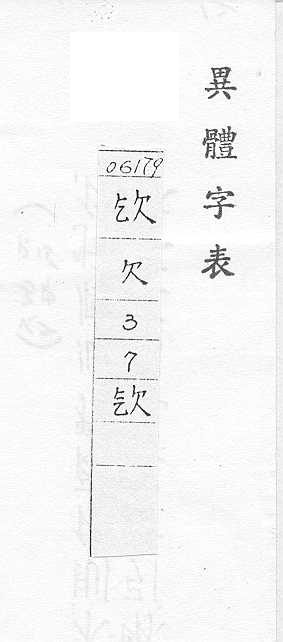 異體字表
06179
欠
3
7